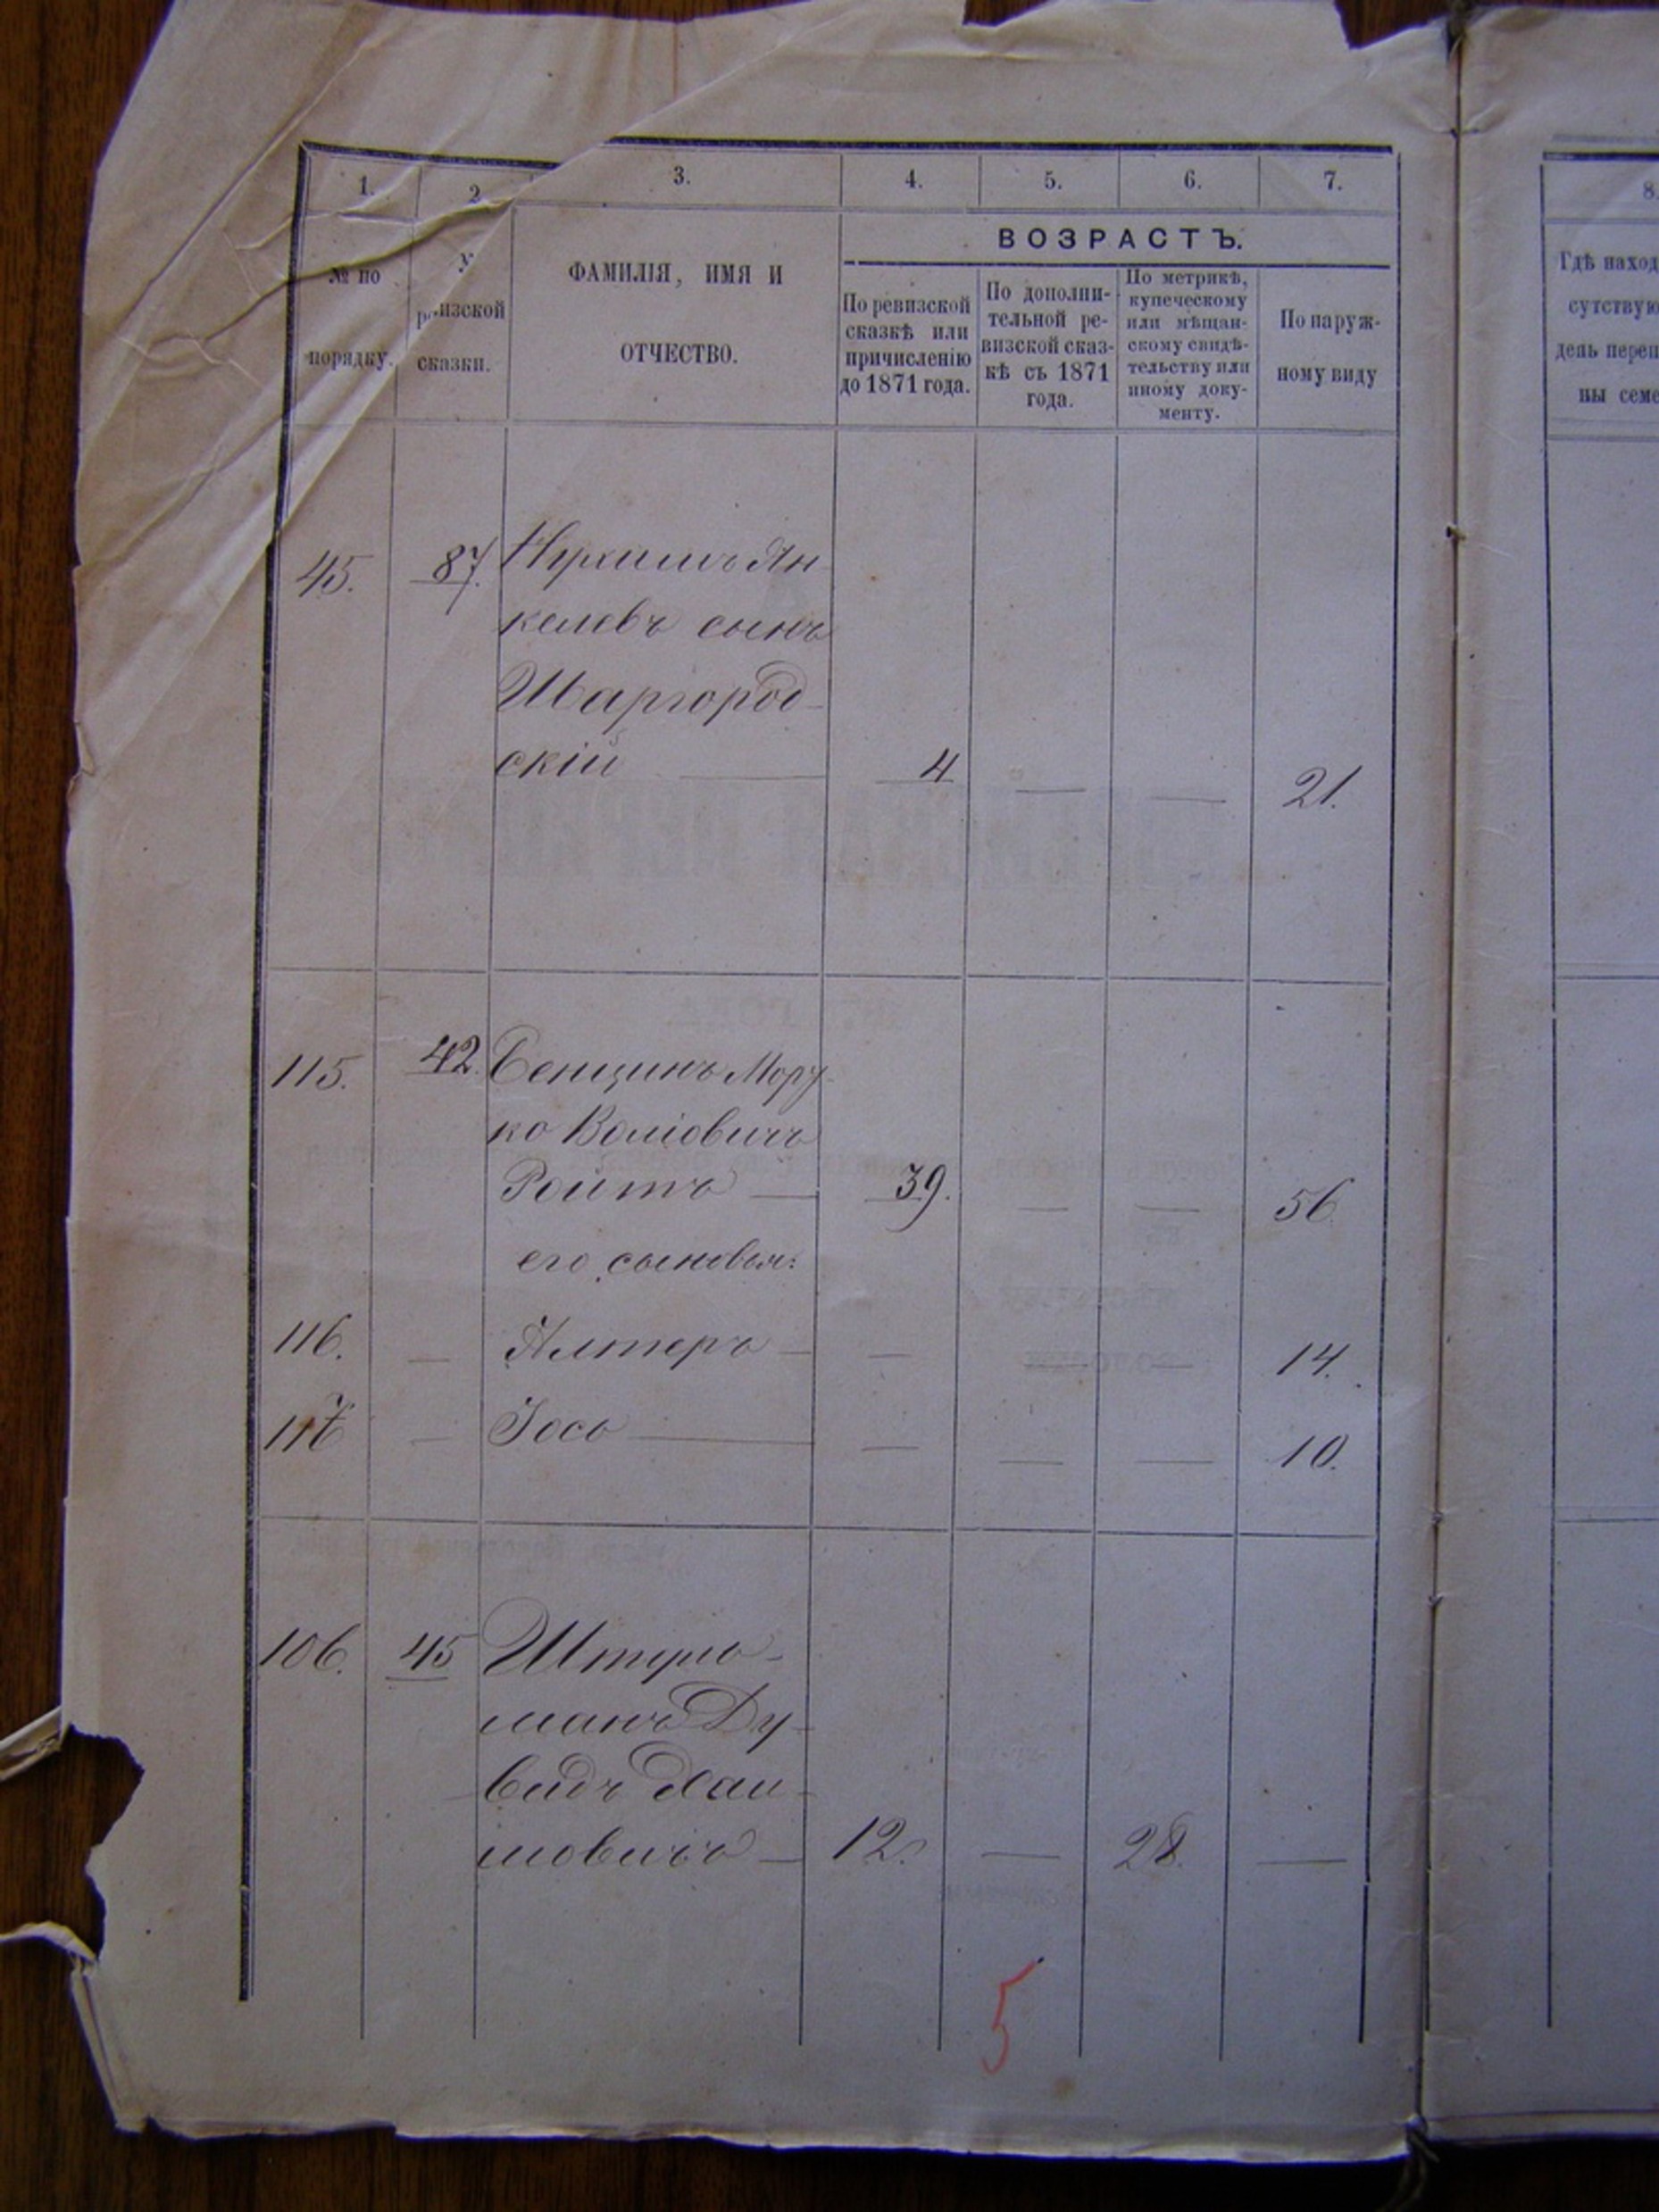 1. 2 3. 4. 5. 6. 7.
ВОЗРАСТЪ.
№ по
порядку.
ревизской
сказки.
ФАМИЛІЯ, ИМЯ И
ОТЧЕСТВО.
По ревизской
сказкѣ или
причисленію
до 1871 года.
По дополни-
тельной ре-
визской сказ-
кѣ съ 1871
года.
По метрикѣ,
купеческому
или мѣщан-
скому свидѣ-
тельству или
иному доку-
менту.
По наруж-
ному виду
45. 87. Нухимъ Ян-
келевъ сынъ
Шаргород-
скій — 4 — — 21.
115. 42. Бенционъ Мор
ко Волiовичъ
Ройтъ — 39. — — 56.
его сыновья:
116. — Алтеръ — — — — 14.
117 — Іось — — — — 10.
106. 45 Штуль-
манъ Ду-
видъ Хаи-
мовичъ — 12. — 28. —
5
8.
Гдѣ наход
сутствую
день переп
ны семе